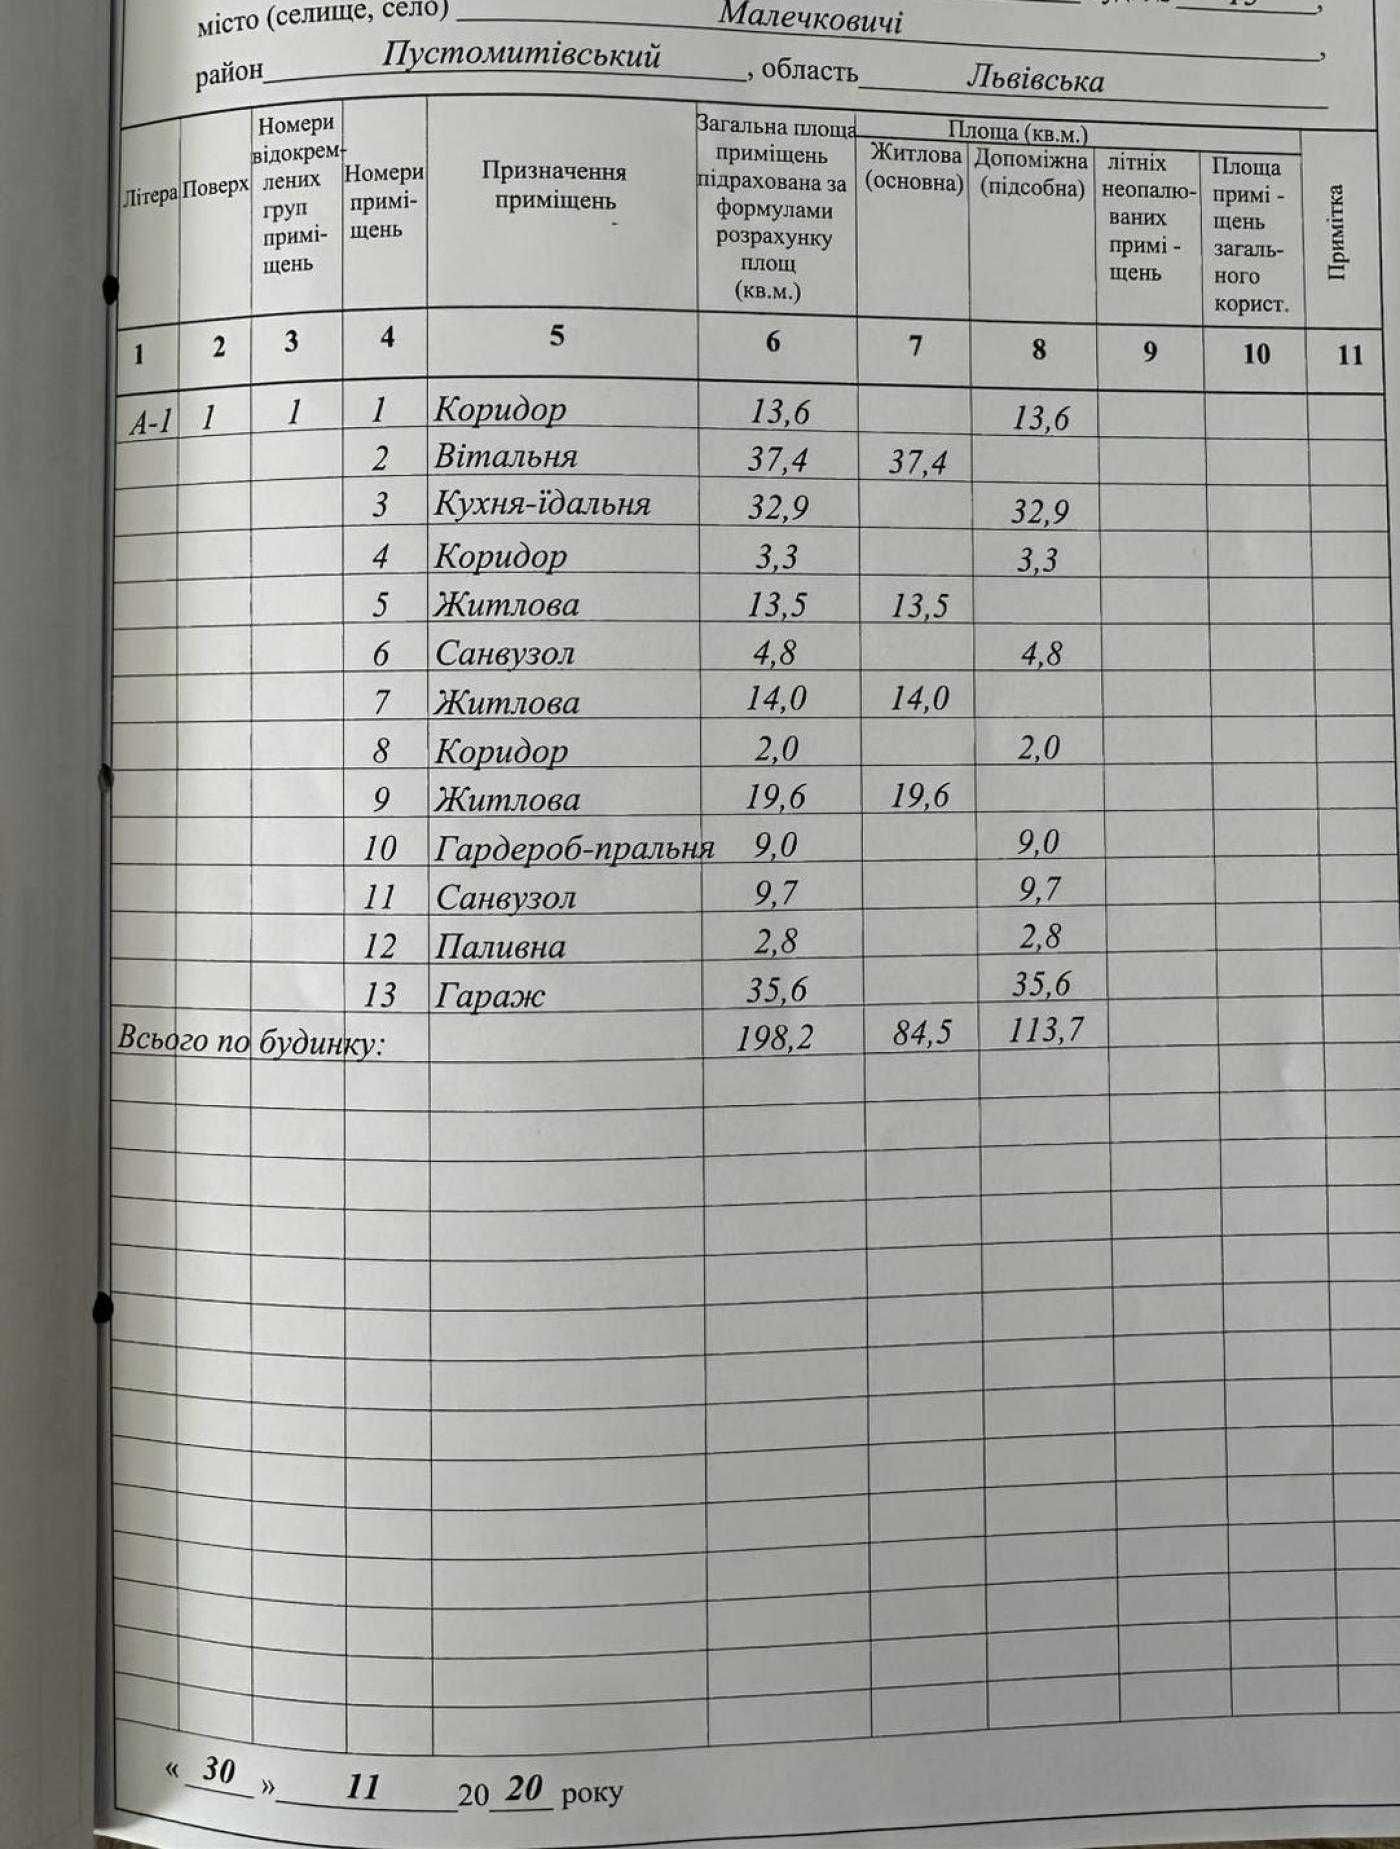 місто (селище, село) Малечковичі ,
район Пустомитівський , область Львівська
Літера Поверх Номери відокрем- лених груп примі- щень Номери примі- щень Призначення приміщень Загальна площа приміщень підрахована за формулами розрахунку площ (кв.м.) Площа (кв.м.) Житлова (основна) Допоміжна (підсобна) літніх неопалю- ваних примі - щень Площа примі - щень загаль- ного корист. Примітка
1 2 3 4 5 6 7 8 9 10 11
А-1 1 1 1 Коридор 13,6 13,6
2 Вітальня 37,4 37,4
3 Кухня-їдальня 32,9 32,9
4 Коридор 3,3 3,3
5 Житлова 13,5 13,5
6 Санвузол 4,8 4,8
7 Житлова 14,0 14,0
8 Коридор 2,0 2,0
9 Житлова 19,6 19,6
10 Гардероб-пральня 9,0 9,0
11 Санвузол 9,7 9,7
12 Паливна 2,8 2,8
13 Гараж 35,6 35,6
Всього по будинку: 198,2 84,5 113,7
« 30 » 11 20 20 року